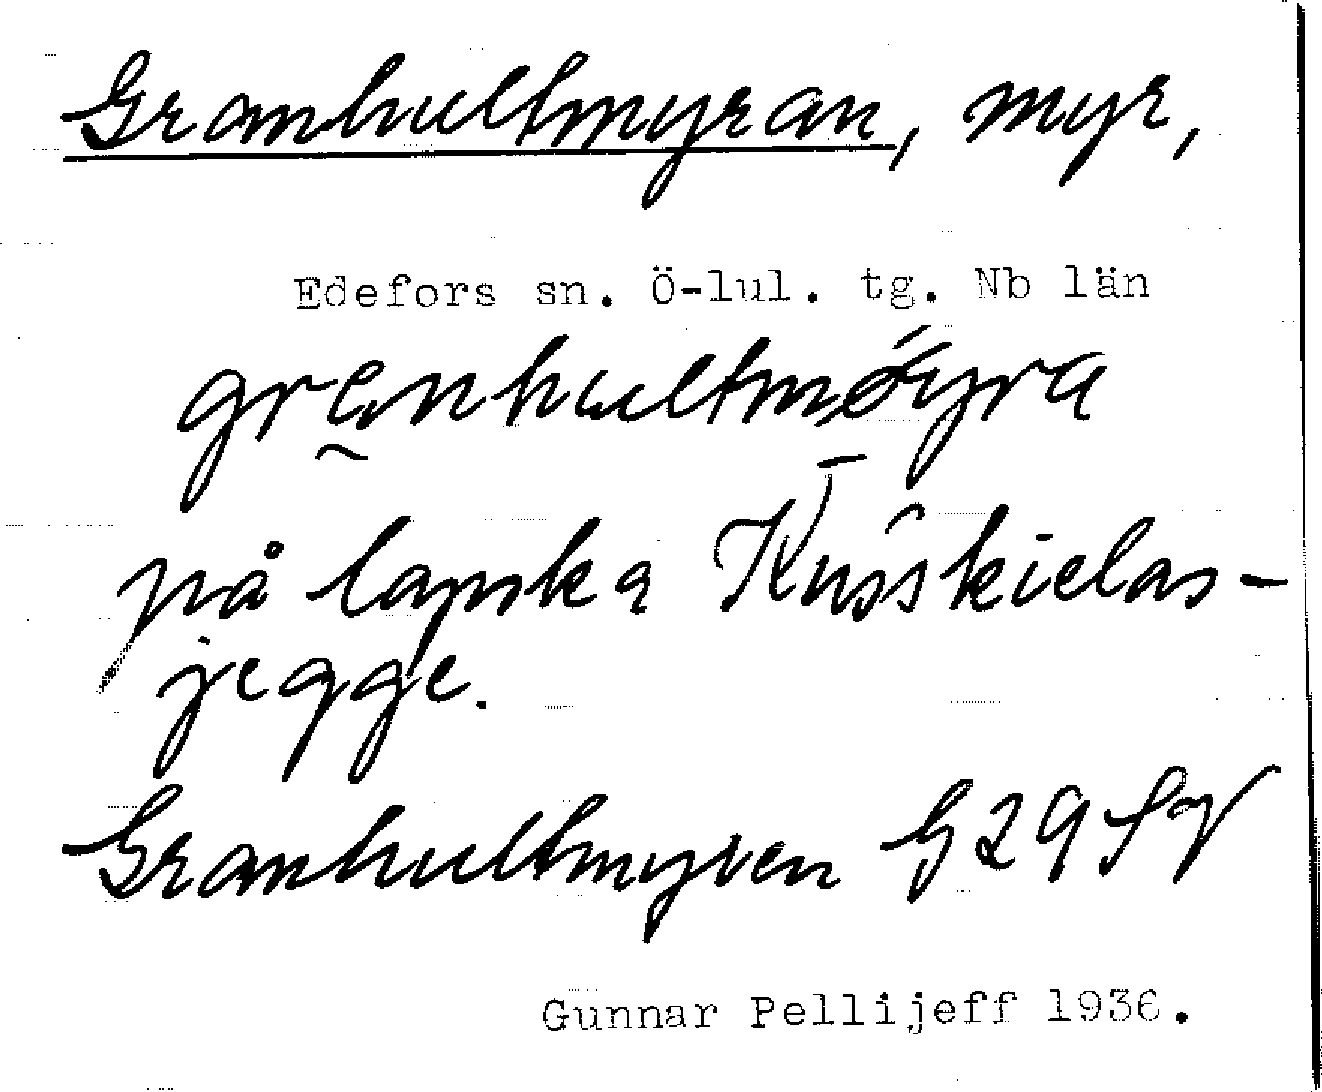 Granhultmyran, myr,
Edefors sn. Ö-lul. tg. Nb län
granhultmøyra
på lapska Kuśśkielas-
jegge.
Granhultmyren G29SV
Gunnar Pellijeff 1936.